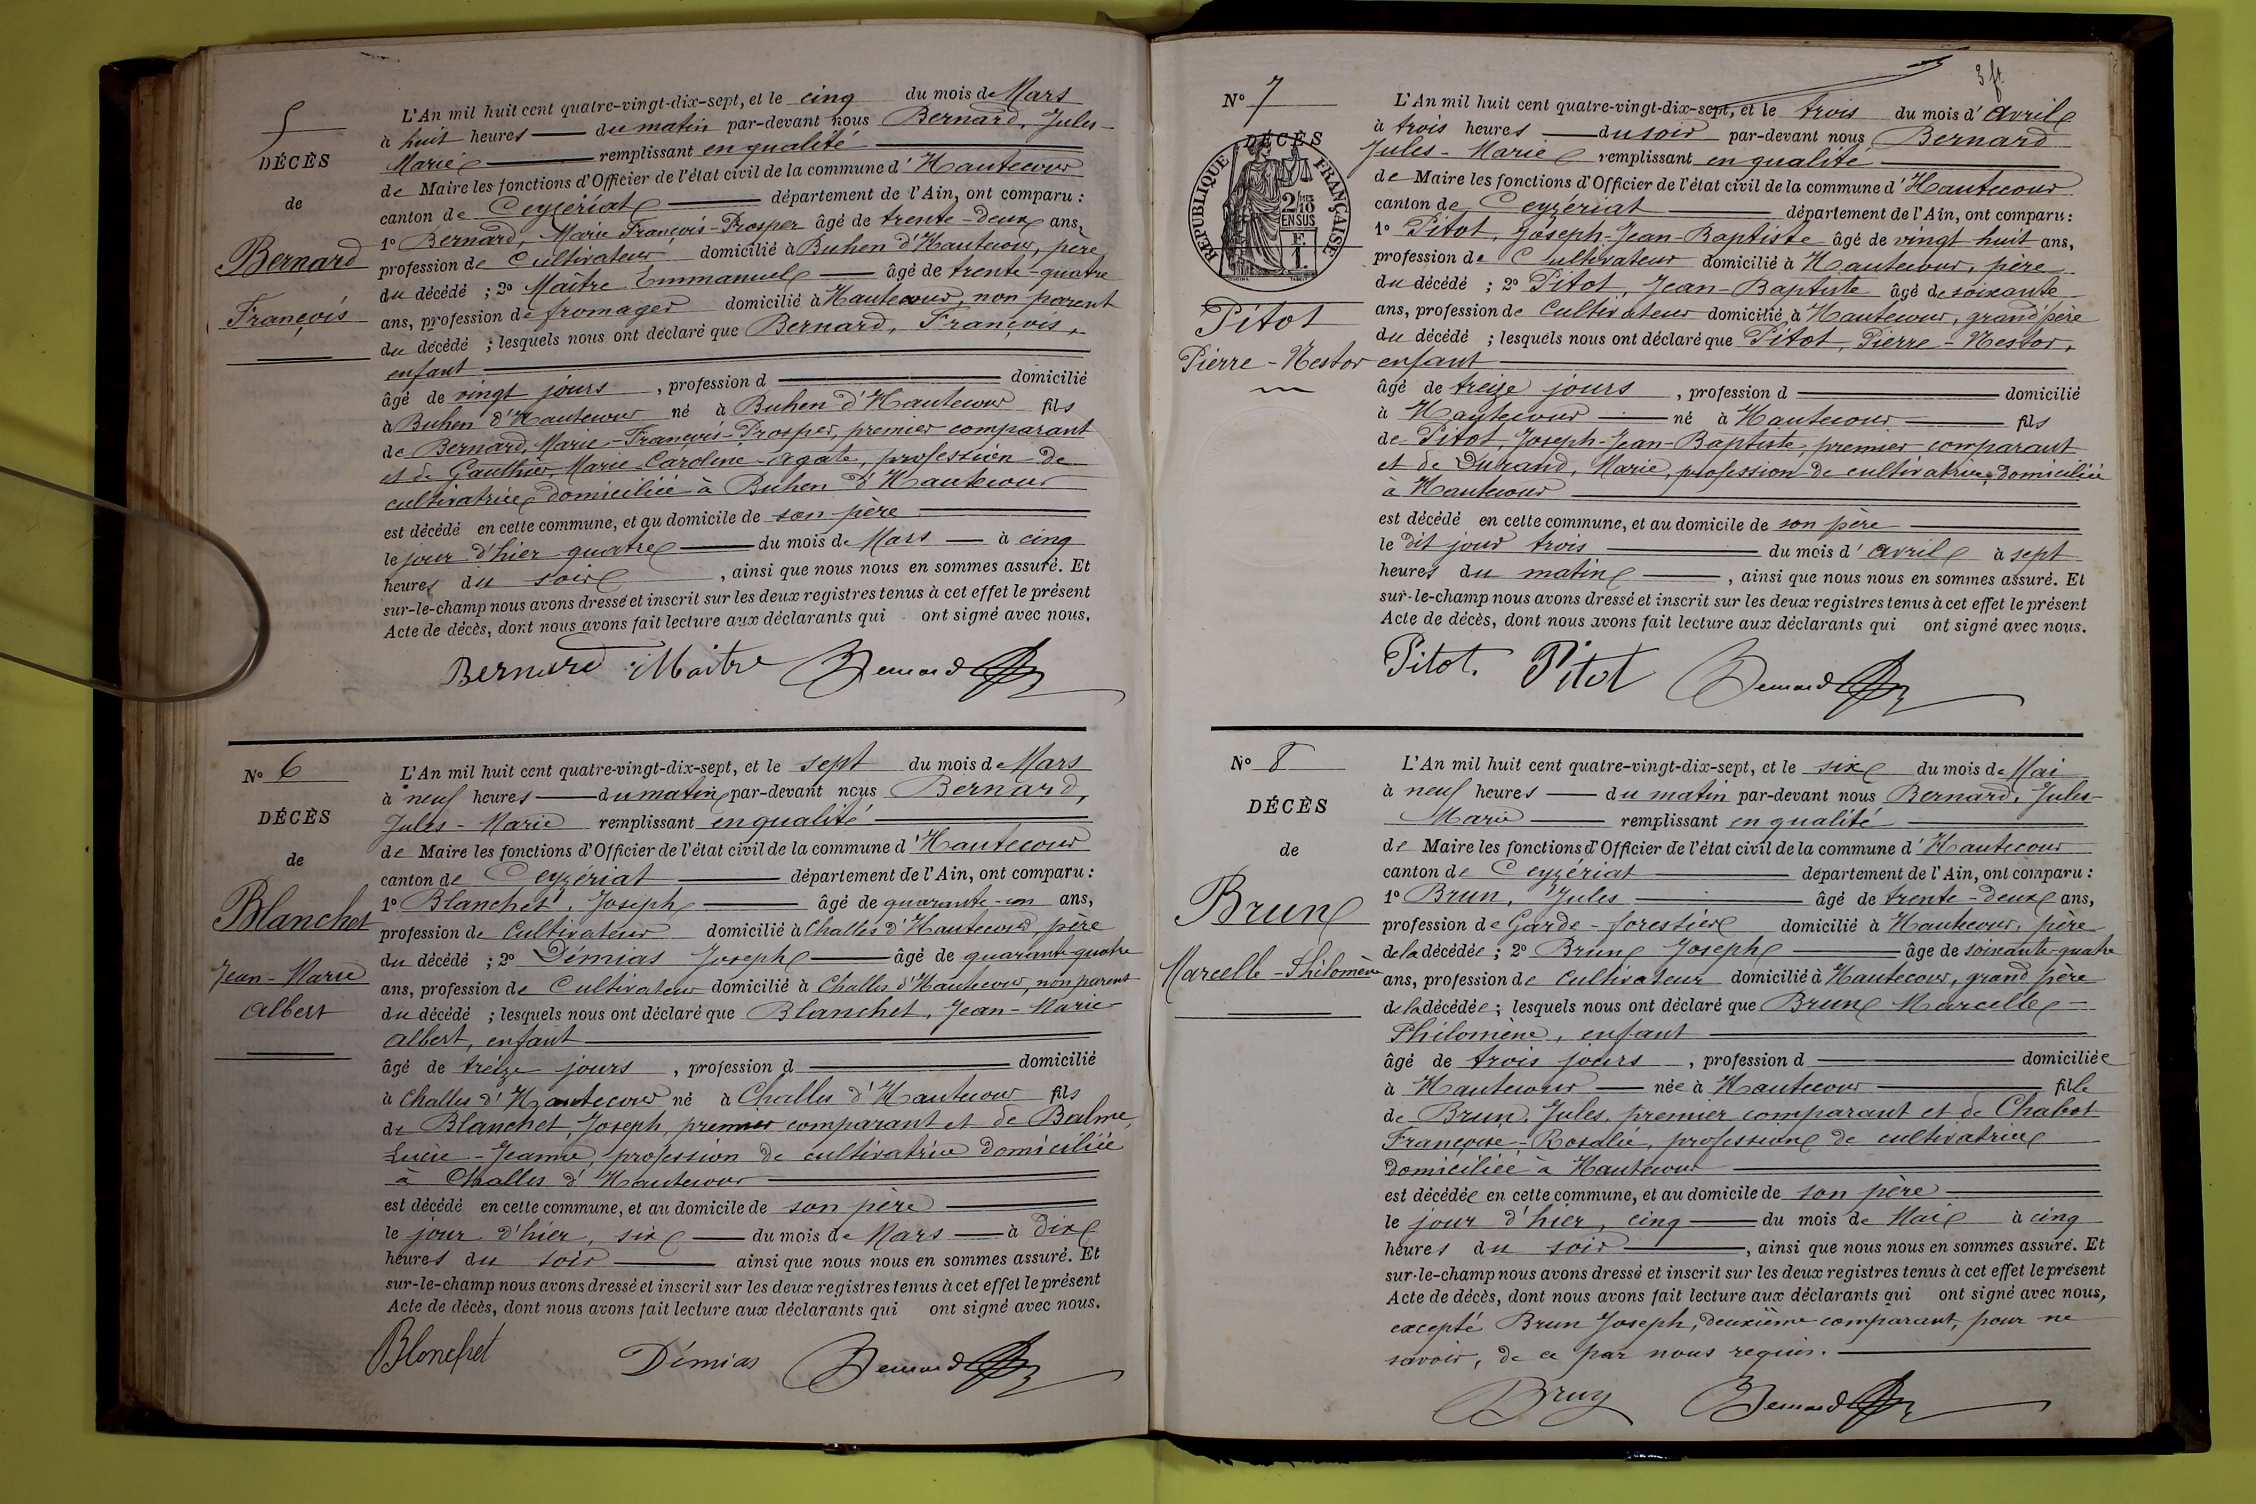 5
DÉCÈS
de
Bernard
François
L'An mil huit cent quatre-vingt-dix-sept, et le cinq du mois de Mars
à huit heures du matin par-devant nous Bernard, Jules-
Marie remplissant en qualité
de Maire les fonctions d'Officier de l'état civil de la commune d'Hautecour
canton de Ceyzériat département de l'Ain, ont comparu :
1º Bernard, Marie François-Prosper âgé de trente-deux ans,
profession de Cultivateur domicilié à Buhen d'Hautecour, père
du décédé ; 2º Maître Emmanuel âgé de trente-quatre
ans, profession de fromager domicilié à Hautecour, non parent
du décédé ; lesquels nous ont déclaré que Bernard, François,
enfant
âgé de vingt jours , profession d domicilié
à Buhen d'Hautecour né à Buhen d'Hautecour fils
de Bernard, Marie-François-Prosper, premier comparant
et de Gauthier, Marie-Caroline-Agate, profession de
cultivatrice domiciliée à Buhen d'Hautecour
est décédé en cette commune, et au domicile de son père
le jour d'hier quatre du mois de Mars à cinq
heures du soir , ainsi que nous nous en sommes assuré. Et
sur-le-champ nous avons dressé et inscrit sur les deux registres tenus à cet effet le présent
Acte de décès, dont nous avons fait lecture aux déclarants qui ont signé avec nous.
Bernard Maître Bernard
Nº 6
DÉCÈS
de
Blanchet
Jean-Marie
Albert
L'An mil huit cent quatre-vingt-dix-sept, et le sept du mois de Mars
à neuf heures du matin par-devant nous Bernard,
Jules-Marie remplissant en qualité
de Maire les fonctions d'Officier de l'état civil de la commune d'Hautecour
canton de Ceyzériat département de l'Ain, ont comparu :
1º Blanchet, Joseph âgé de quarante-un ans,
profession de Cultivateur domicilié à Challes d'Hautecour, père
du décédé ; 2º Démias Joseph âgé de quarante-quatre
ans, profession de Cultivateur domicilié à Challes d'Hautecour, non parent
du décédé ; lesquels nous ont déclaré que Blanchet, Jean-Marie
Albert, enfant
âgé de treize jours , profession d domicilié
à Challes d'Hautecour né à Challes d'Hautecour fils
de Blanchet, Joseph, premier comparant et de Balme,
Lucie-Jeanne, profession de cultivatrice domiciliée
à Challes d'Hautecour
est décédé en cette commune, et au domicile de son père
le jour d'hier, six du mois de Mars à dix
heures du soir ainsi que nous nous en sommes assuré. Et
sur-le-champ nous avons dressé et inscrit sur les deux registres tenus à cet effet le présent
Acte de décès, dont nous avons fait lecture aux déclarants qui ont signé avec nous.
Blanchet Démias Bernard
3 ft
Nº 7
DÉCÈS
RÉPUBLIQUE FRANÇAISE
2/10 EN SUS
F. 1.
Pitot
Pierre-Nestor
L'An mil huit cent quatre-vingt-dix-sept, et le trois du mois d'avril
à trois heures du soir par-devant nous Bernard
Jules-Marie remplissant en qualité
de Maire les fonctions d'Officier de l'état civil de la commune d'Hautecour
canton de Ceyzériat département de l'Ain, ont comparu :
1º Pitot, Joseph-Jean-Baptiste âgé de vingt huit ans,
profession de Cultivateur domicilié à Hautecour, père
du décédé ; 2º Pitot, Jean-Baptiste âgé de soixante
ans, profession de Cultivateur domicilié à Hautecour, grand père
du décédé ; lesquels nous ont déclaré que Pitot, Pierre-Nestor,
enfant
âgé de treize jours , profession d domicilié
à Hautecour né à Hautecour fils
de Pitot, Joseph-Jean-Baptiste, premier comparant
et de Durand, Marie, profession de cultivatrice, domiciliée
à Hautecour
est décédé en cette commune, et au domicile de son père
le dit jour trois du mois d'avril à sept
heures du matin , ainsi que nous nous en sommes assuré. Et
sur-le-champ nous avons dressé et inscrit sur les deux registres tenus à cet effet le présent
Acte de décès, dont nous avons fait lecture aux déclarants qui ont signé avec nous.
Pitot. Pitot Bernard
Nº 8
DÉCÈS
de
Brun
Marcelle-Philomène
L'An mil huit cent quatre-vingt-dix-sept, et le six du mois de Mai
à neuf heures du matin par-devant nous Bernard, Jules-
Marie remplissant en qualité
de Maire les fonctions d'Officier de l'état civil de la commune d'Hautecour
canton de Ceyzériat département de l'Ain, ont comparu :
1º Brun, Jules âgé de trente-deux ans,
profession de Garde-forestier domicilié à Hautecour, père
de la décédée ; 2º Brun Joseph âgé de soixante-quatre
ans, profession de Cultivateur domicilié à Hautecour, grand père
de la décédée ; lesquels nous ont déclaré que Brun Marcelle-
Philomène, enfant
âgé de trois jours , profession d domiciliée
à Hautecour née à Hautecour fille
de Brun, Jules, premier comparant et de Chabot
Françoise-Rosalie, profession de cultivatrice
domiciliée à Hautecour
est décédée en cette commune, et au domicile de son père
le jour d'hier, cinq du mois de Mai à cinq
heures du soir , ainsi que nous nous en sommes assuré. Et
sur-le-champ nous avons dressé et inscrit sur les deux registres tenus à cet effet le présent
Acte de décès, dont nous avons fait lecture aux déclarants qui ont signé avec nous,
excepté Brun Joseph, deuxième comparant, pour ne
savoir, de ce par nous requis.
Brun Bernard